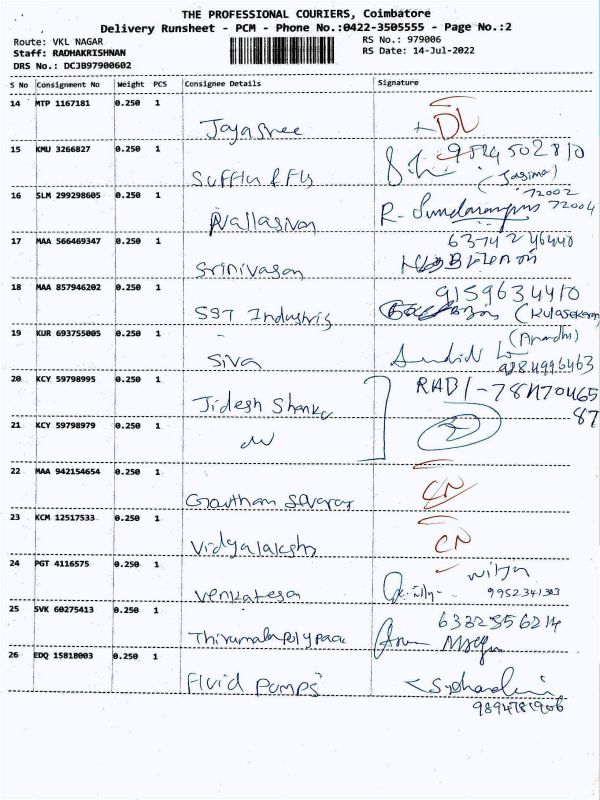 THE PROFESSIONAL COURIERS, Coimbatore
Delivery Runsheet - PCM - Phone No.:0422-3505555 - Page No.:2
Route: VKL NAGAR RS No.: 979006
Staff: RADHAKRISHNAN RS Date: 14-Jul-2022
DRS No.: DCJB97900602
S No Consignment No Weight PCS Consignee Details Signature
14 MTP 1167181 0.250 1
Jayashree DL
15 KMU 3266827 0.250 1
9524502810
(Jasima)
16 SLM 299298605 0.250 1
72002
Nallasivan R- 72004
17 MAA 566469347 0.250 1
6374246440
Srinivasan
18 MAA 857946202 0.250 1
9159634410
SST Industris (Kulasekaran)
19 KUR 693755005 0.250 1
(Anandhi)
Siva 9284996463
20 KCY 59798995 0.250 1
Jidesh
87
21 KCY 59798979 0.250 1
2
22 MAA 942154654 0.250 1
Gowtham CN
23 KCM 12517533 0.250 1
Vidyalakshi CN
24 PGT 4116575 0.250 1
Venkatesa 9952341303
25 SVK 60275413 0.250 1
6382556214
Thirumala polypack
26 EDQ 15818003 0.250 1
Fluid Pumps
9894781906